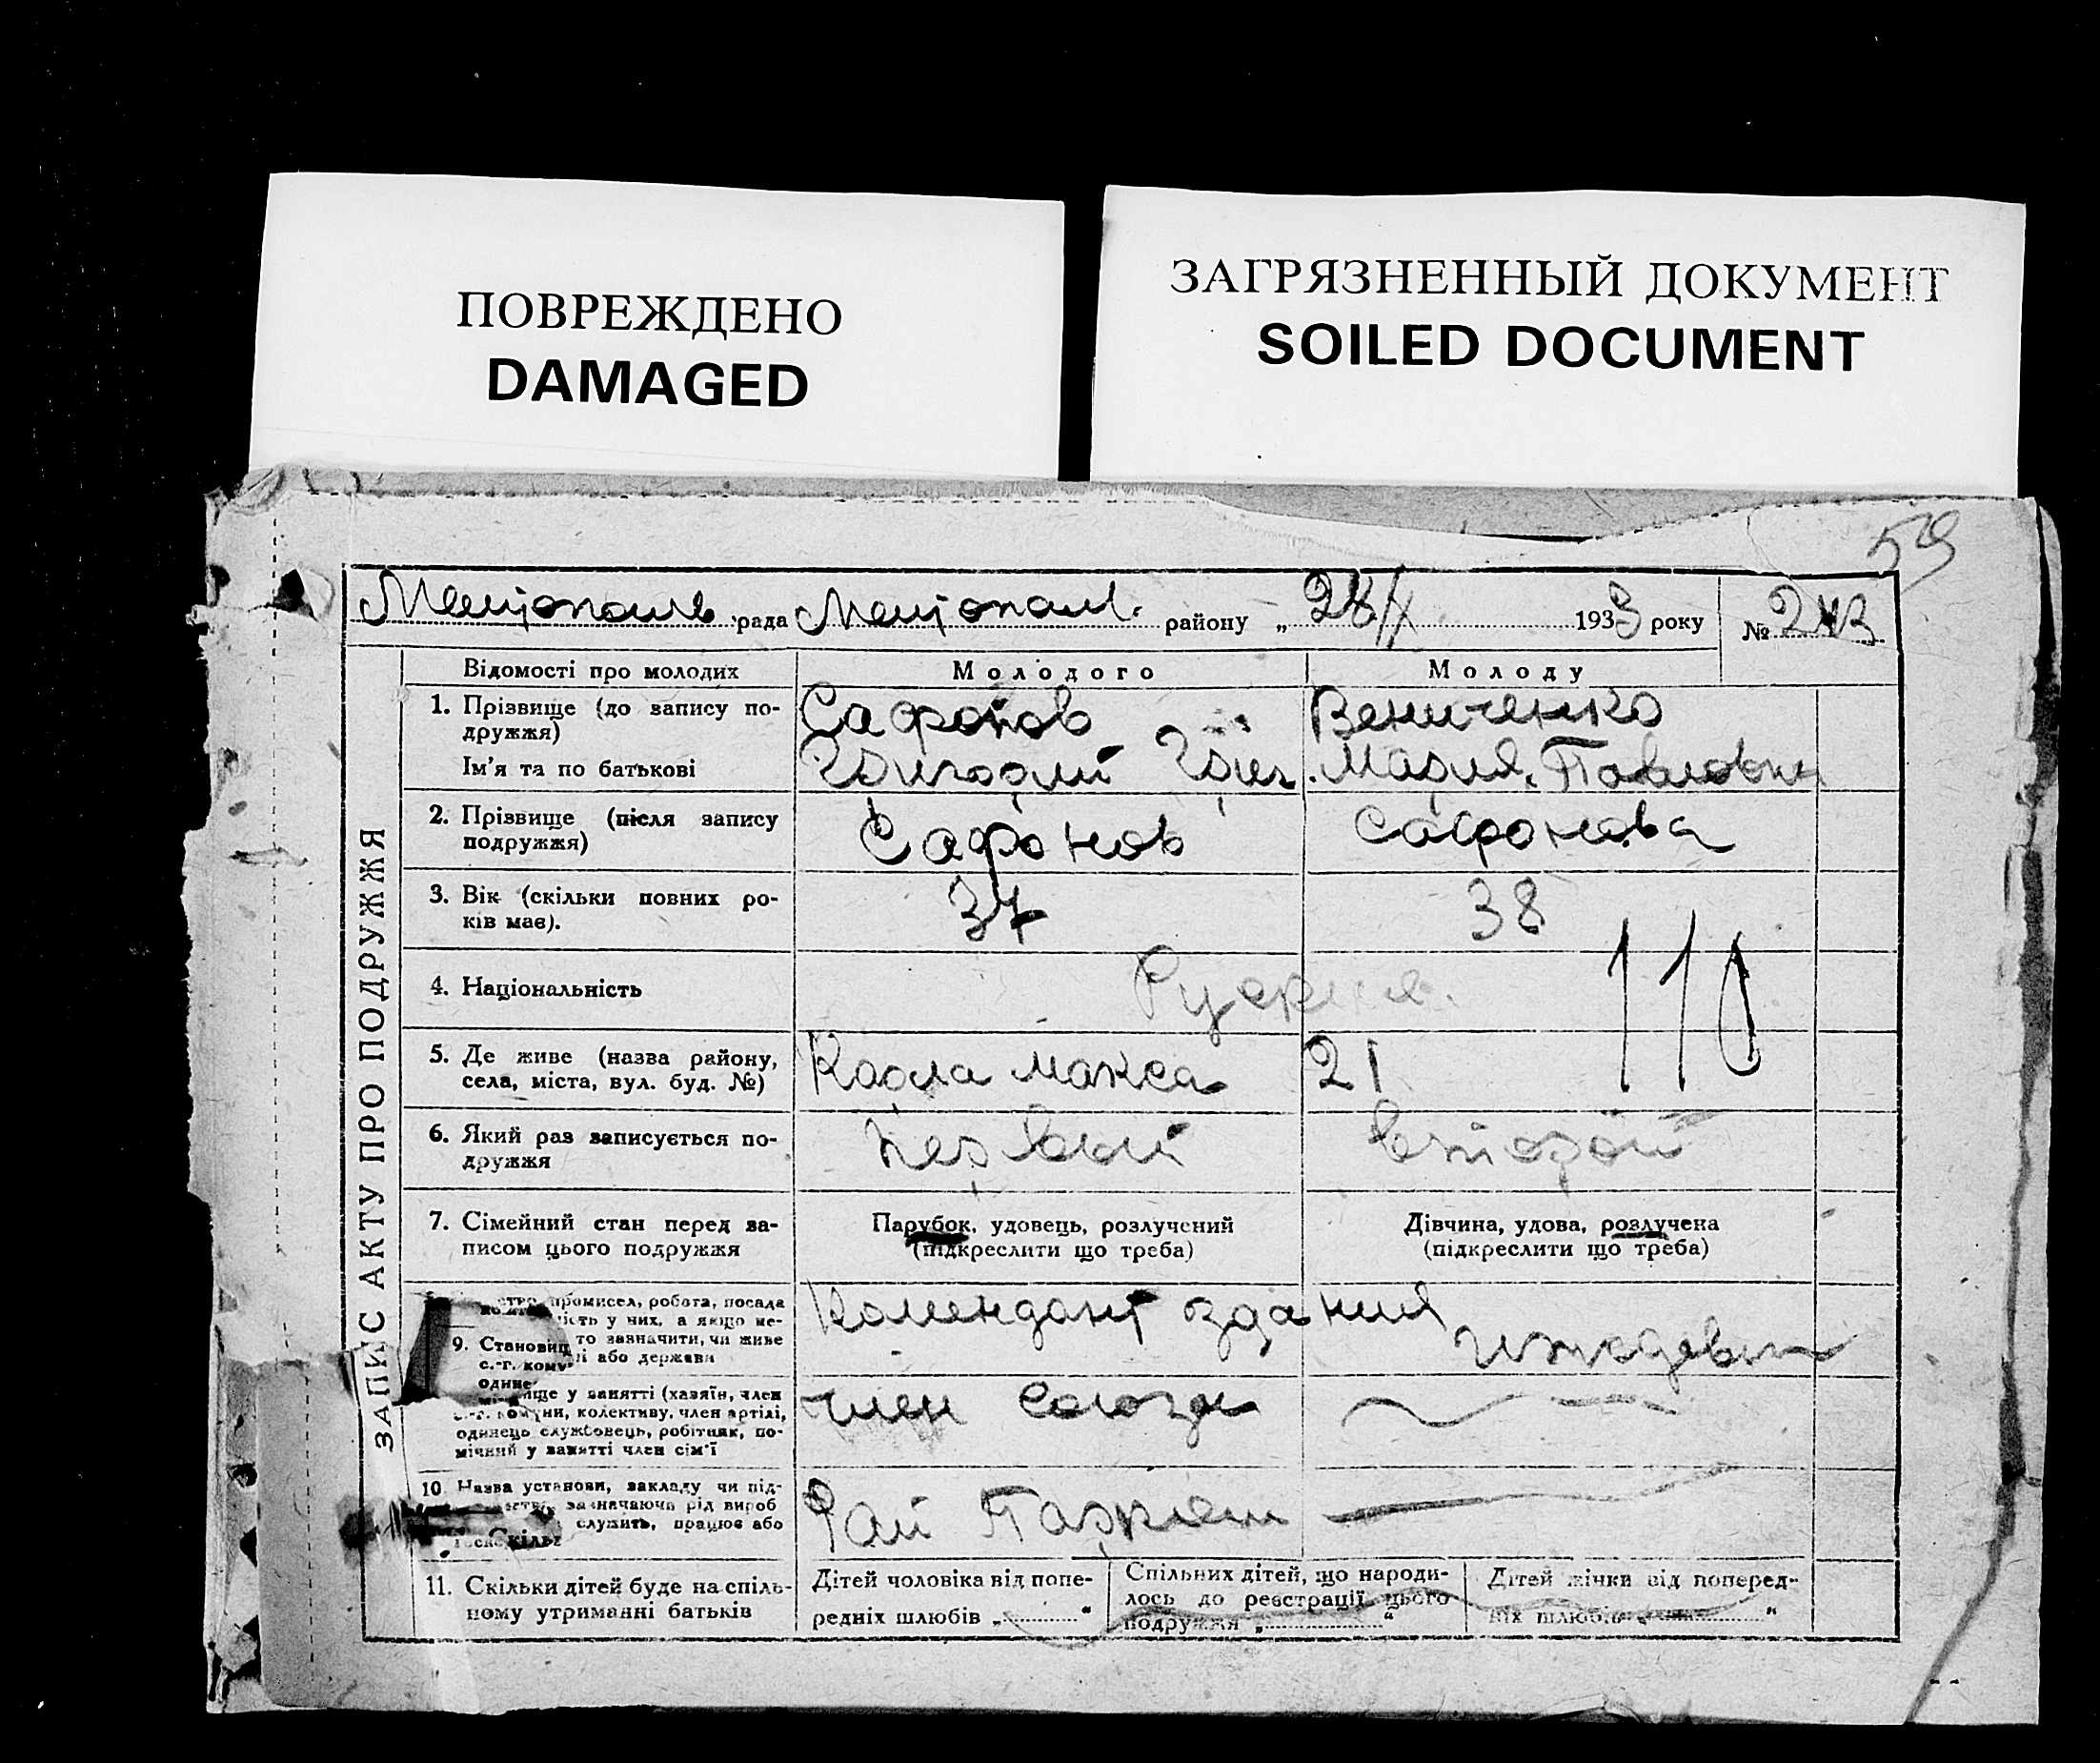 ПОВРЕЖДЕНО
DAMAGED
ЗАГРЯЗНЕННЫЙ ДОКУМЕНТ
SOILED DOCUMENT
59
рада района „28/X 1933 року №
ЗАПИС АКТУ ПРО ПОДРУЖЖЯ
Відомості про молодих
Молодого
Молоду
1. Прізвище (до запису по-
дружжя)
Ім'я та по батькові
Сафонов
Григорий Григ.
Вениченко
Мария Павловна
2. Прізвище (після запису
подружжя)
Сафонов
Сафонова
3. Вік (скільки повних ро-
ків має).
37
38
4. Національність
Руския.
110
5. Де живе (назва району,
села, міста, вул. буд. №)
Карла Макса 21
6. Який раз записується по-
дружжя
первый
второй
7. Сімейний стан перед за-
писом цього подружжя
Парубок, удовець, розлучений
(підкреслити що треба)
Дівчина, удова, розлучена
(підкреслити що треба)
промисел, робота, посада
у них, а якщо не-
то зазначити, чи живе
або держави
9. Становищ
с.-г. кому
один
Комендант здания
Иждевен
ище у занятті (хазяїн, член
комуни, колективу, член артілі,
одинець службовець, робітник, по-
мічний у занятті член сім'ї
член союза
10 Назва установи, закладу чи під-
зазначаючи рід вироб
служить, працює або
Рай Парком
11. Скільки дітей буде на спіль-
ному утриманні батьків
Дітей чоловіка від попе-
редніх шлюбів „ “
Спільних дітей, що народи-
лось до реєстрації цього
подружжя „ “
Дітей жінки від поперед-
ніх шлюбів „ “